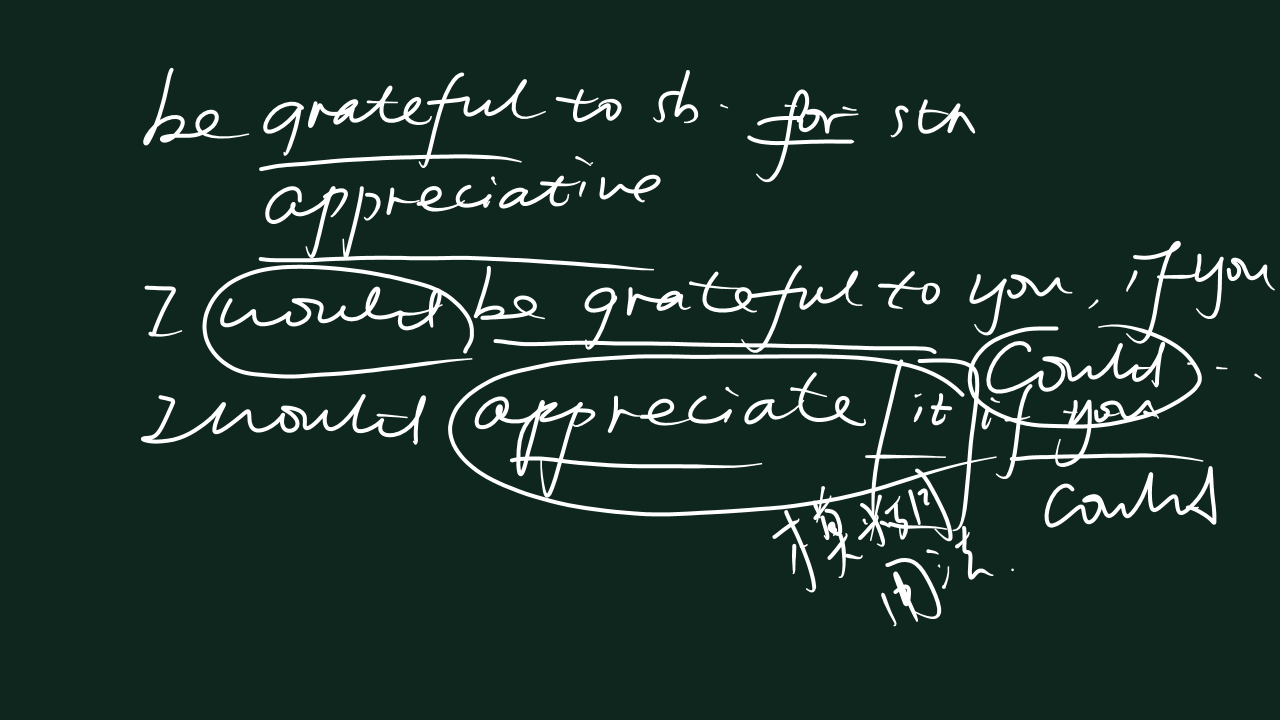 be grateful to sb. for sth
appreciative
I would be grateful to you, if you
could ...
I would appreciate it if you
could